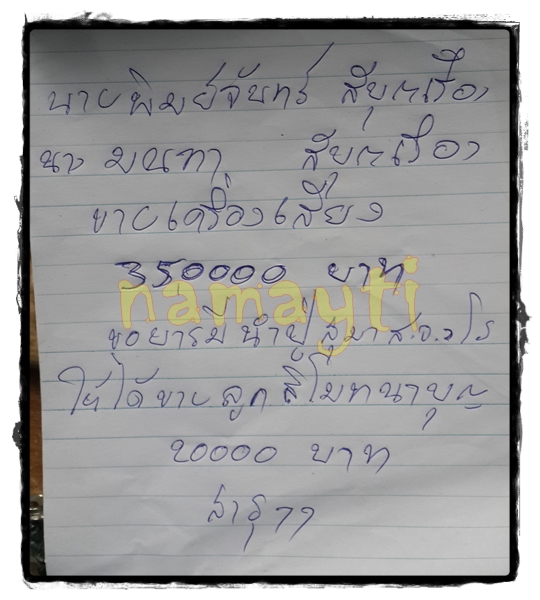 นายพิมย์จันทร์ สัยุทเรือง
นาง มณฑา สัยุทเรือง
ขายเครื่องเสียง
350000 บาท
namayti
ขอบารมี นำ ปู่
ให้ได้ขาย ลูก สิโมทนาบุญ
20000 บาท
สาธุๆๆ